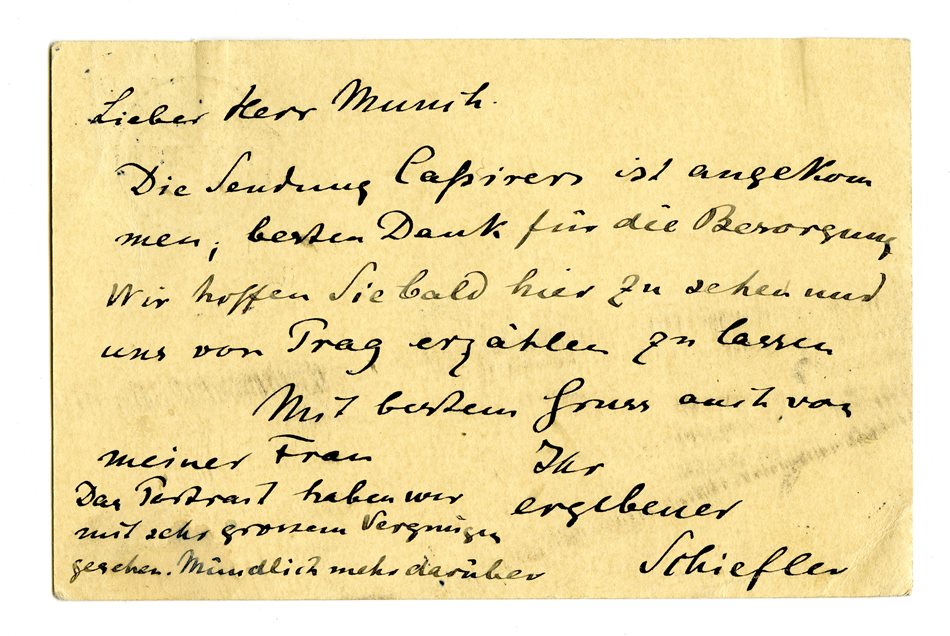 Lieber Herr Munch.
Die Sendung Caßirers ist angekom
men; besten Dank für die Besorgung
Wir hoffen Sie bald hier zu sehen und
uns von Prag erzählen zu lassen
Mit bestem Gruss auch von
meiner Frau
Ihr
ergebener
Schiefler
Das Portrait haben wir
mit sehr grossem Vergnügen
gesehen. Mündlich mehr darüber